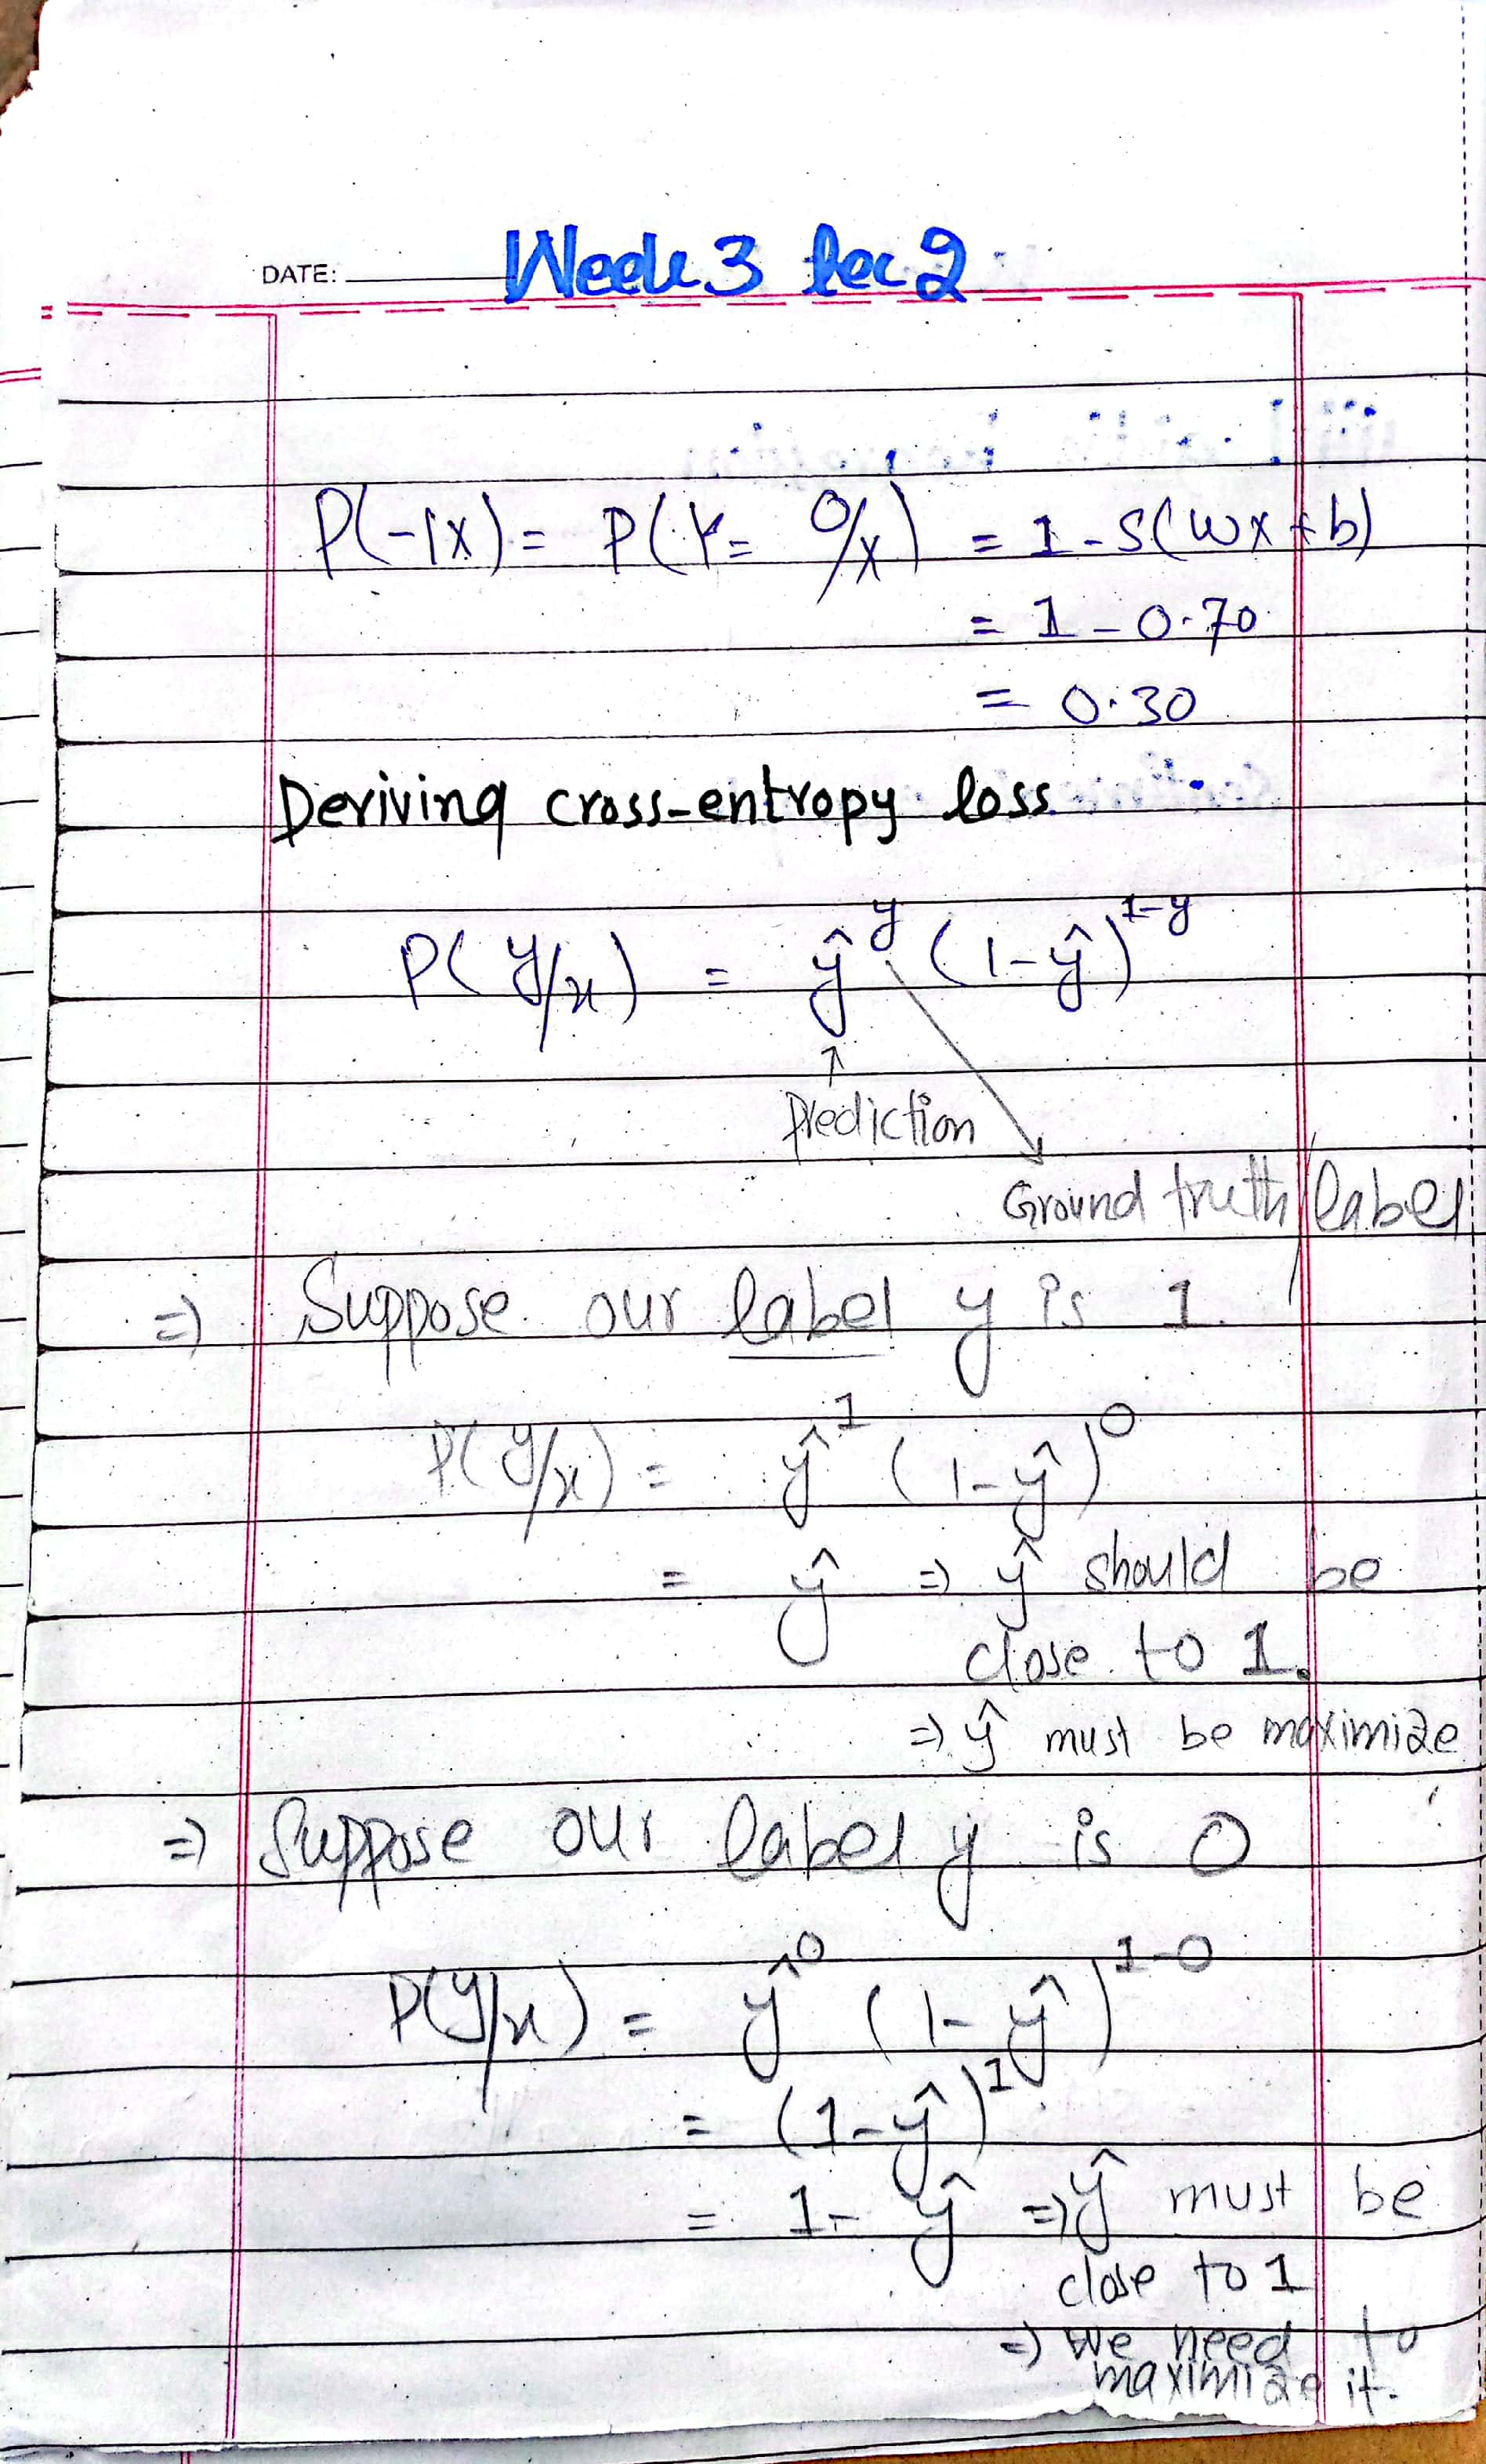 DATE: Week 3 Lec 2
P(-|x) = P(Y= 0/x) = 1-S(wx+b)
= 1-0.70
= 0.30
Deriving cross-entropy loss
P(y/x) = ŷ^y (1-ŷ)^1-y
↑
Prediction
Ground truth label
⇒ Suppose our label y is 1.
P(y/x) = ŷ^1 (1-ŷ)^0
= ŷ ⇒ ŷ should be
close to 1.
⇒ ŷ must be maximize
⇒ Suppose our label y is 0
P(y/x) = ŷ^0 (1-ŷ)^1-0
= (1-ŷ)^1
= 1-ŷ ⇒ ŷ must be
close to 1
⇒ we need to
maximize it.